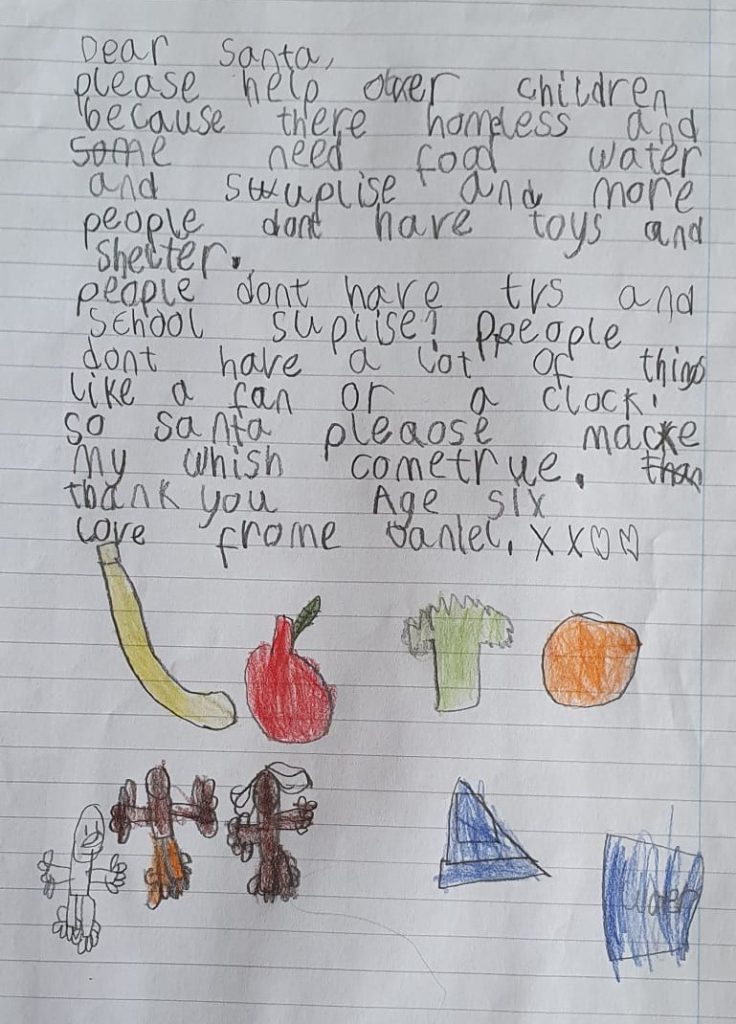 Dear Santa,
please help other children
because there homeless and
some need food water
and suuplise and more
people dont have toys and
shelter.
people dont have tvs and
school suplise! people
dont have a lot of things
like a fan or a clock!
so santa pleaose macke
my whish cometrue. than
thank you Age six
Love frome Daniel. x x
water